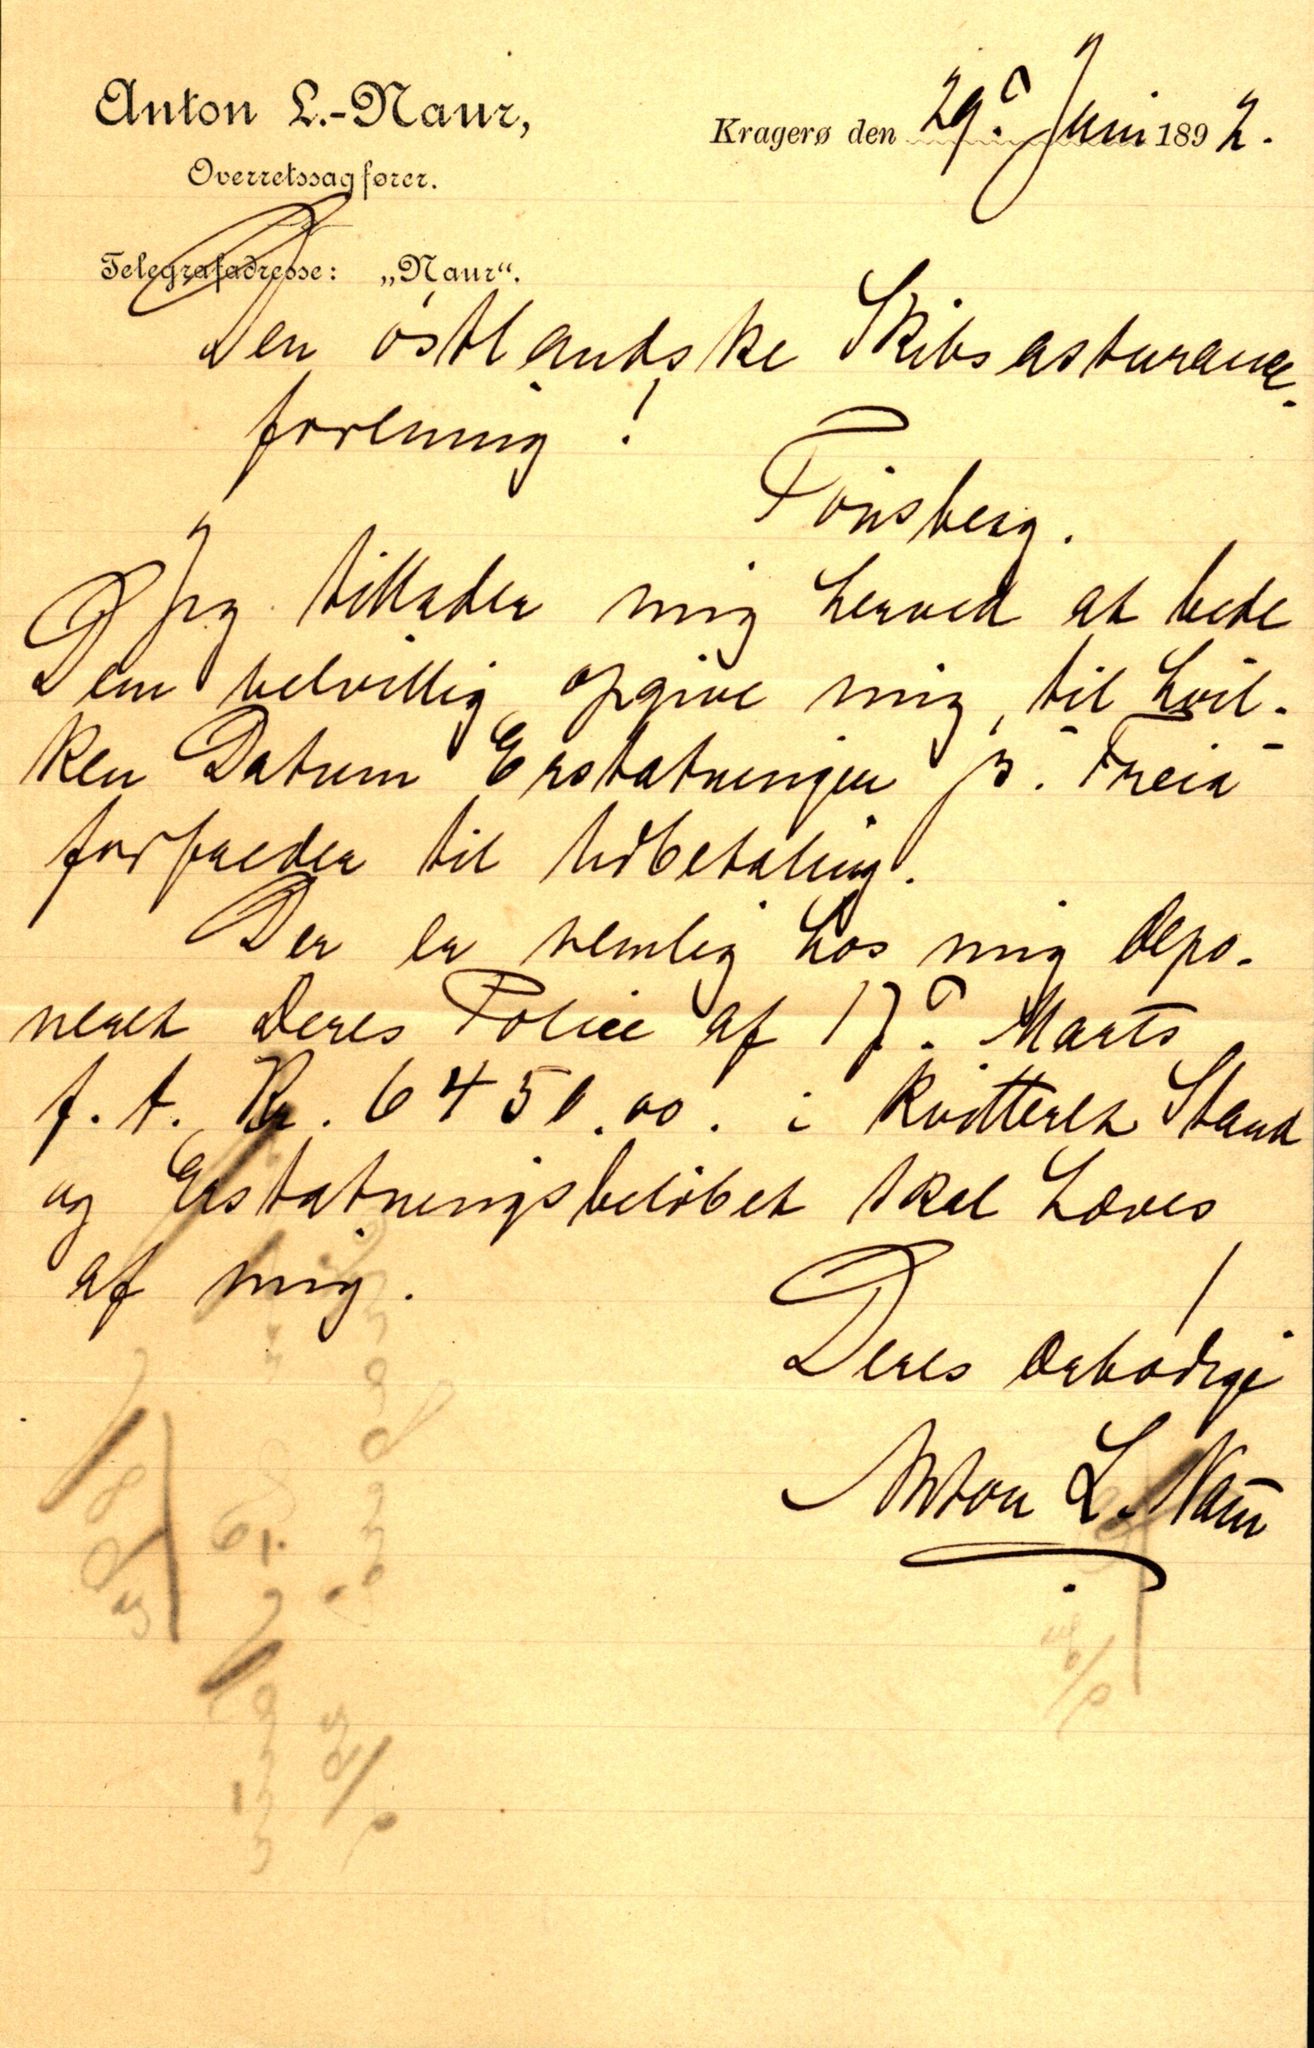 Anton L.-Naur,
Overretssagfører.
Telegrafadresse: „Naur“.
Kragerø den 29. Juni 1892.
Den östlandske Skibsassurance-
forening!
Tönsberg.
Jeg tillader mig herved at bede
Dem velvillig opgive mig, til hvil-
ken Datum Erstatningen p. "Freia"
forfalder til Udbetaling.
Der er nemlig hos mig depo-
neret Deres Police af 17. Marts
f. A. Kr. 6450.00. i kvitteret Stand
og Erstatningsbelöbet skal hæves
af mig.
Deres ærbödige
Anton L. Naur